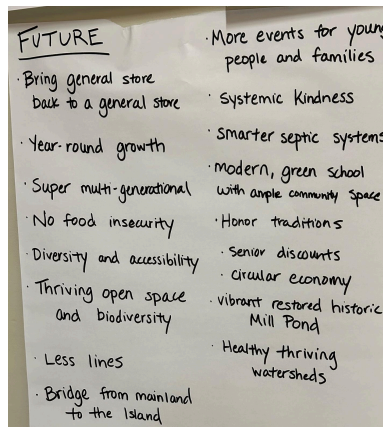 FUTURE
· Bring general store
back to a general store
· Year-round growth
· Super multi-generational
· No food insecurity
· Diversity and accessibility
· Thriving open space
and biodiversity
· Less lines
· Bridge from mainland
to the Island
· More events for young
people and families
· Systemic Kindness
· Smarter septic systems
· Modern, green school
with ample community space
· Honor traditions
· Senior discounts
· Circular economy
· Vibrant restored historic
Mill Pond
· Healthy thriving
watersheds